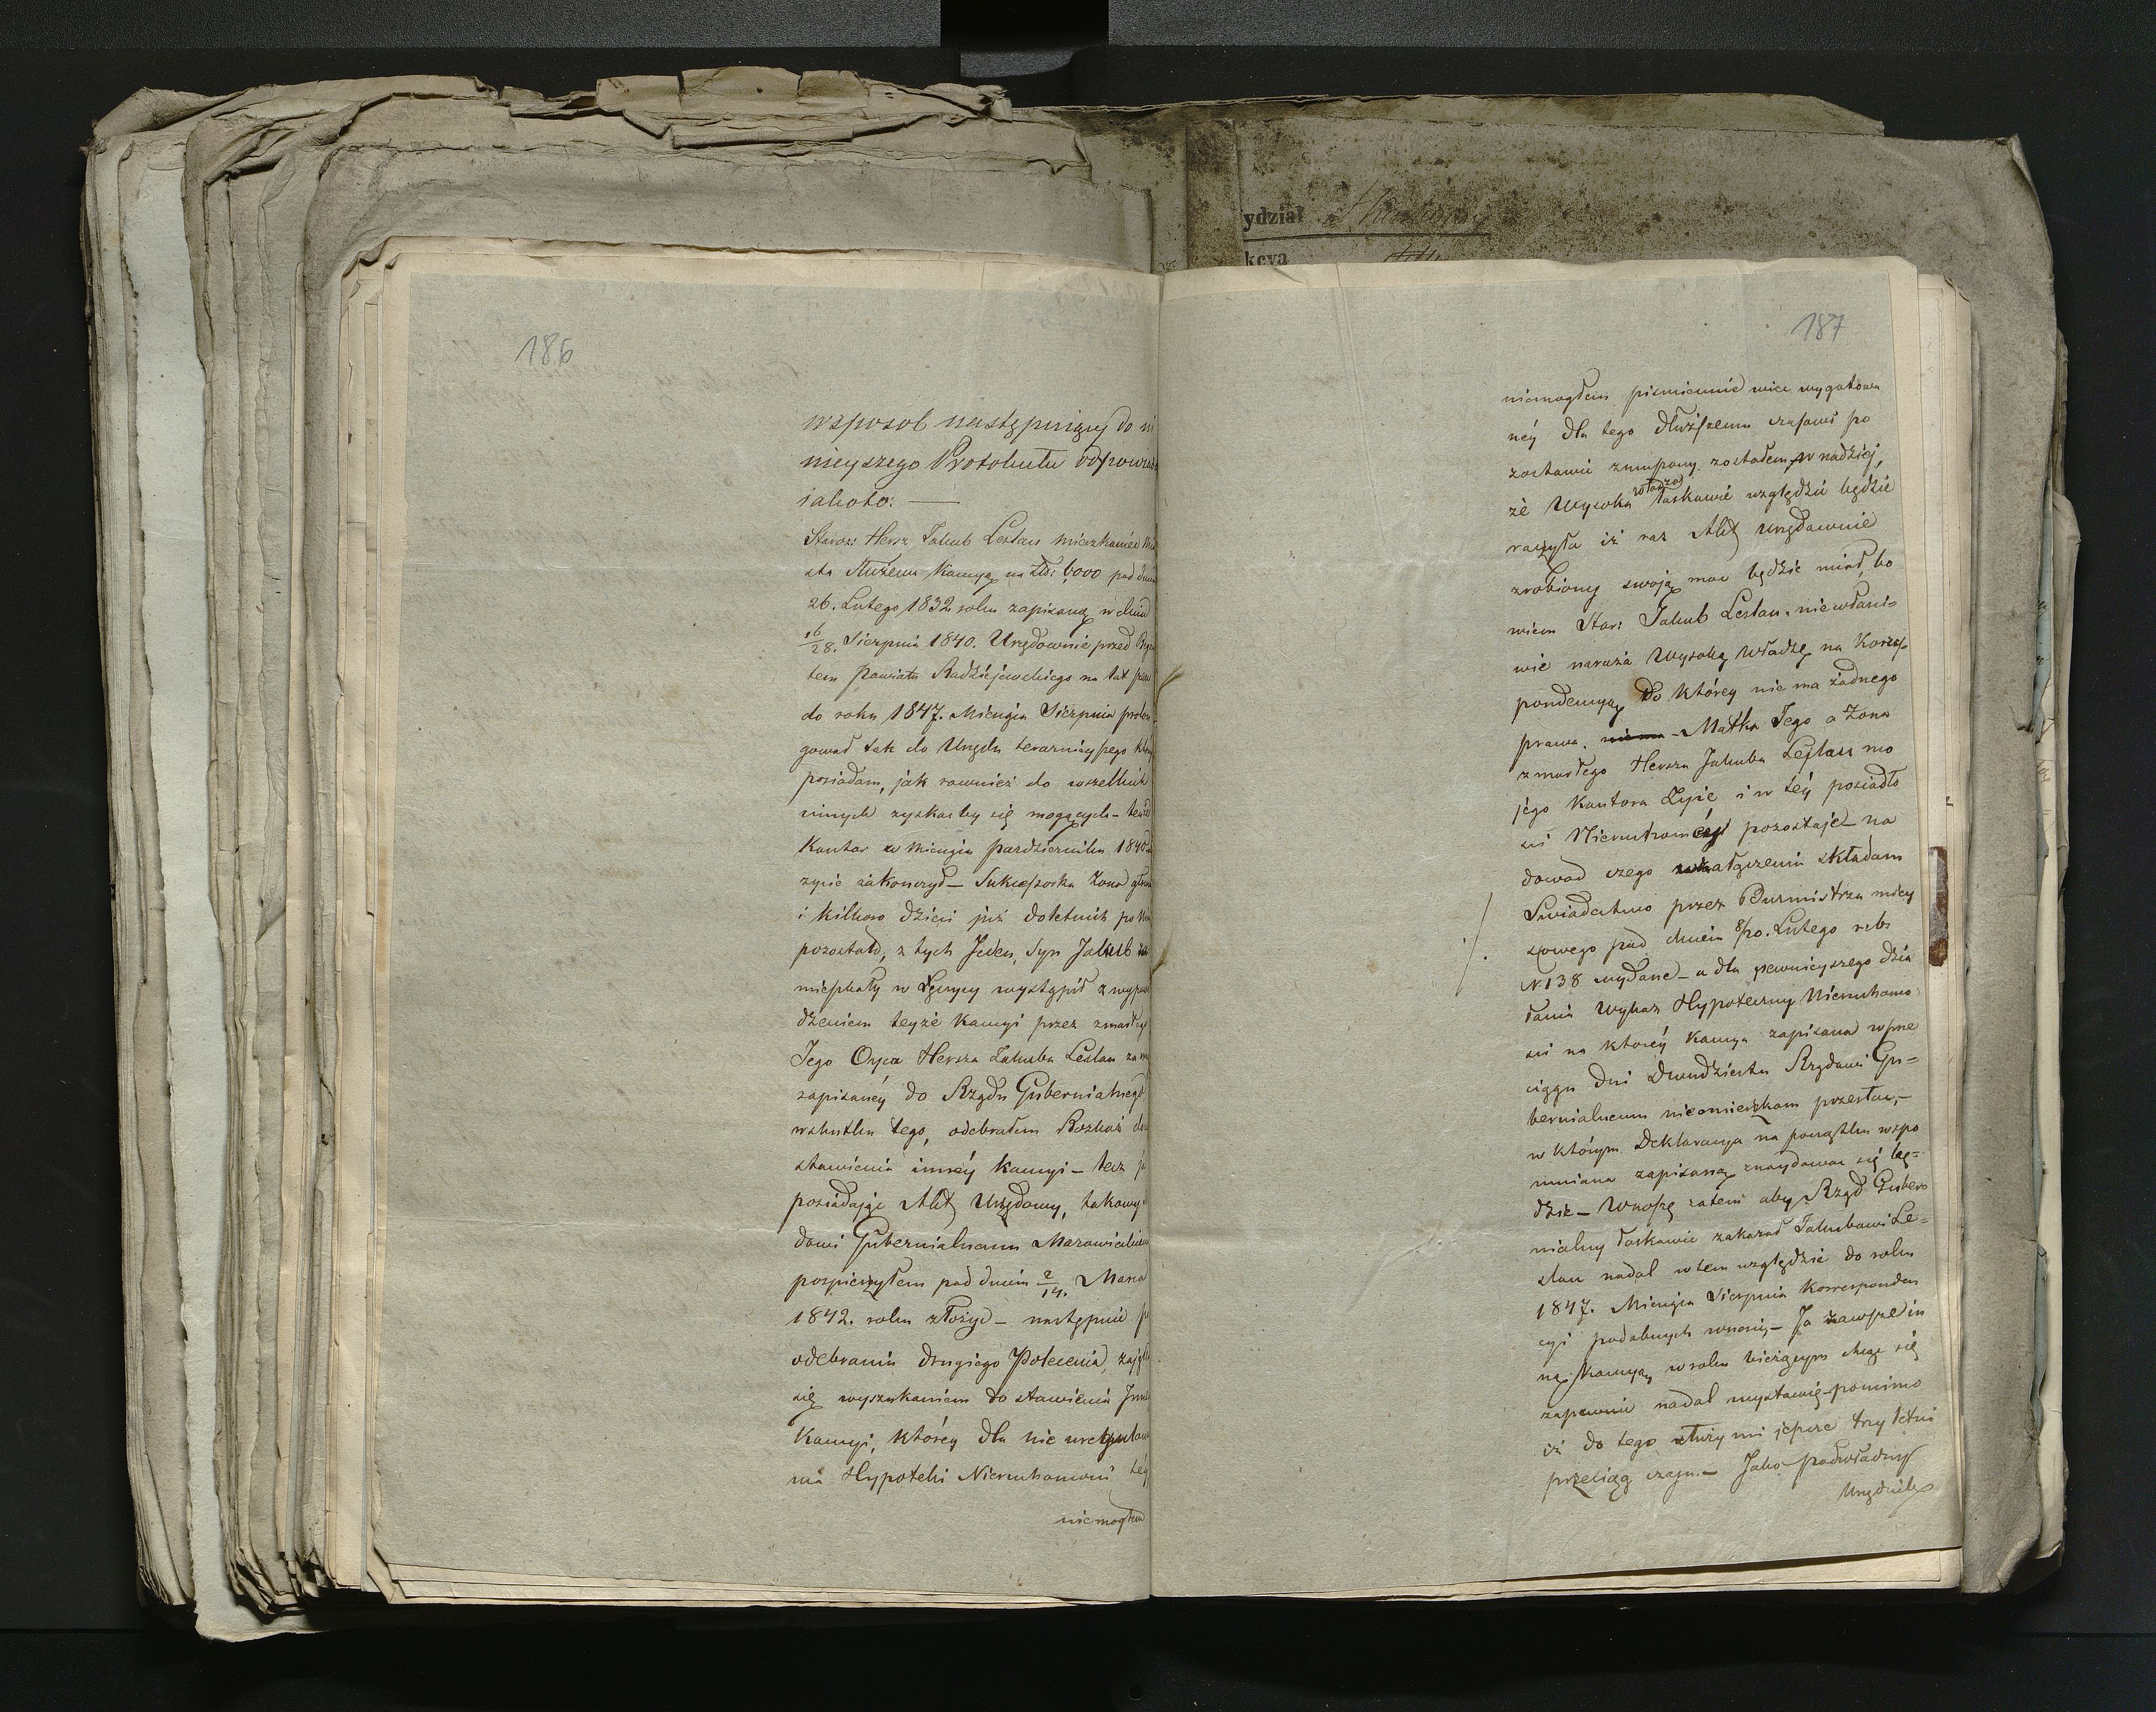 ydział
kcya
186
wsposob następuiący do ni
nieyszego Protokułu odpowia
iakoto: —
Staroz: Hersz Jakub Leslau mieszkaniec Mia
sta Służewa Kaucyą na Złp: 6,000 pod dniem
26. Lutego 1832 roku zapisaną w dniu
16/28. Sierpnia 1840. Urzędownie przed Reje
tem Powiatu Radziejewskiego na lat
do roku 1847. Miesiąca Sierpnia prolon
gował tak do Urzędu terazniejszego który
posiadam, jak rownież do wszelkich
innych zyskać by się mogących – tenże
Kantor w Miesiącu Pazdzierniku 1840
zycie zakonczył – Sukcessorka Żona
i kilkoro dzieci już doletnich po
pozostało, z tych Jeden, Syn Jakub
mieszkały w Łęczycy wystąpił z wypowie
dzeniem teyże Kaucyi przez zmarłego
Jego Oyca Hersza Jakuba Leslau za
zapisanéy do Rządu Gubernialnego
wskutku tego, odebrałem Rozkaz do
stawienia innéy Kaucyi – lecz ja
posiadając Akt Urzędowy, takowy
dowi Gubernialnemu Mazowieckiemu
pospieszyłem pod dniem 2/14. Marca
1842. roku złożyć – następnie po
odebraniu drugiego Polecenia, zająłem
się wyszukaniem do stawienia Inné
Kaucyi, którey dla nie uregulowa
nia Hypoteki Nieruchomości téy
niemogłem
187
niemogłem pismiennie wiec wygotowa
néy dla tego dłuższemu czasowi po
zostawić zmuszony zostałem w nadziéj,
że Wysoka Władza łaskawie względzić będzie
raczyła iż raz Akt urzędownie
zrobiony swoją moc będzie miał, bo
wiem Star: Jakub Leslau. niewłasci=
wie naraża Wysoką Władzę na Korres
pondencyą do którey nie ma żadnego
prawa. – Matka Jego a Żona
zmarłego Hersza Jakuba Leslau mo
jego Kantora Żyie i w téy posiadło
sci Nieruchomey pozostaje – na
dowod czego załączeniu składam
Swiadectwo przez Burmistrza miey
scowego pod dniem 8/20. Lutego r. b.
N 138 wydane – a dla pewnieyszego dzia
łania Wykaz Hypoteczny Nieruchomo
sci na którey Kaucya zapisana wprze
ciągu dni dwudziestu Rządowi Gu=
bernialnemu nieomieszkam przesłac, –
w którym Deklaracya na początku wspo
mniana zapisaną znaydować się bę=
dzie – Wnoszę zatem aby Rząd Guber
nialny łaskawie zakazał Jakubowi Le=
slau nadal wtem względzie do roku
1847. Miesiąca Sierpnia Korresponden
cyi podobnych wnosić, – Ja zawsze in
ną Kaucyą w roku bieżącym chcąc się
zapewnić nadal wystawię – pomimo
iż do tego służy mi jeszcze trzy letni
przeciąg czasu. – Jako podwładny
Urzędnik